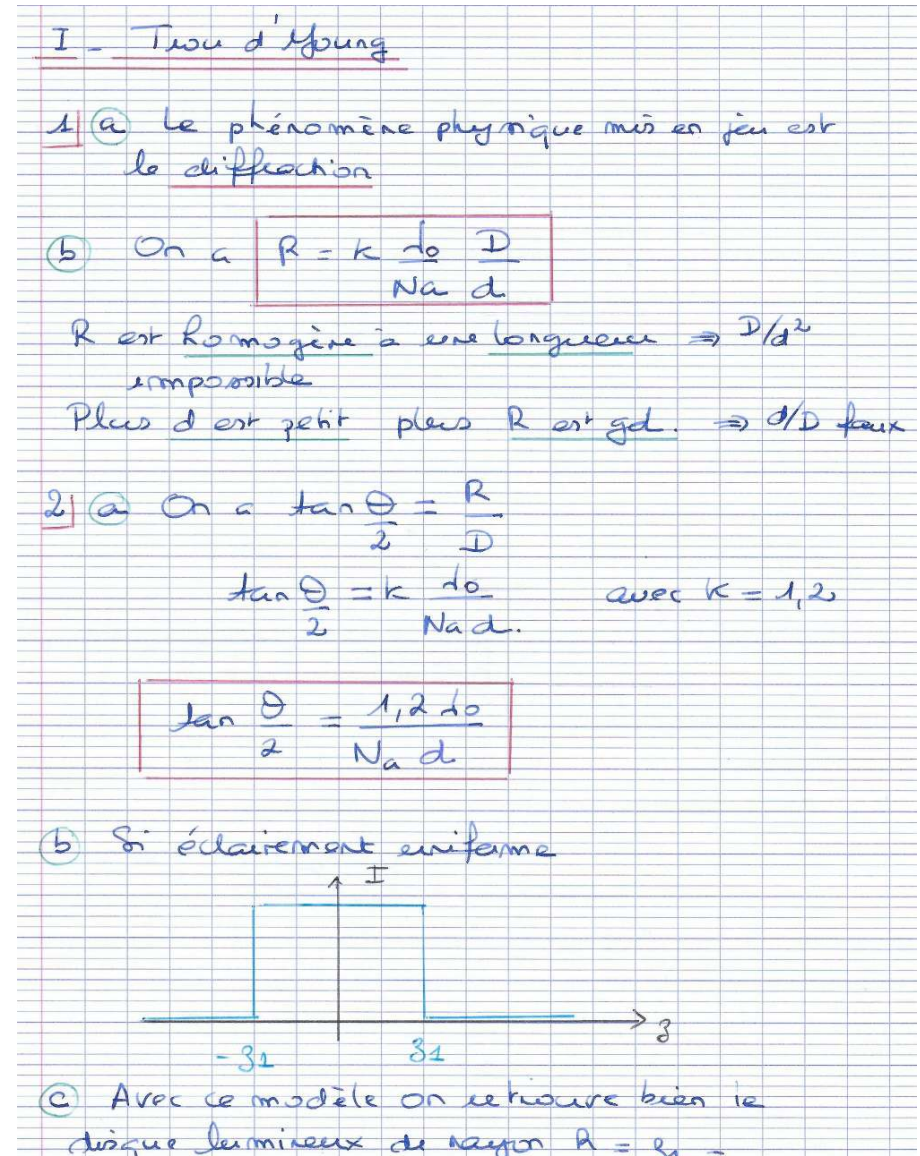 I - Trou d'Young
1 a Le phénomène physique mis en jeu est
la diffraction
b On a R = k λ0/Na D/d
R est homogène à une longueur ⇒ D/d²
impossible
Plus d est petit plus R est gd. ⇒ d/D faux
2 a On a tan θ/2 = R/D
tan θ/2 = k λ0/Na d. avec k = 1,2
tan θ/2 = 1,2 λ0/Na d
b Si éclairement uniforme
I
-z1 z1 z
c Avec ce modèle on retrouve bien le
disque lumineux de rayon R =